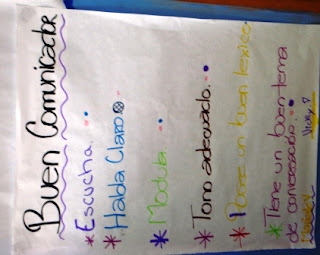 Buen Comunicador
* Escucha.
* Habla Claro
* Modula.
* Tono adecuado.
* Posee un buen lexico
* Tiene un buen tema
de conversación.